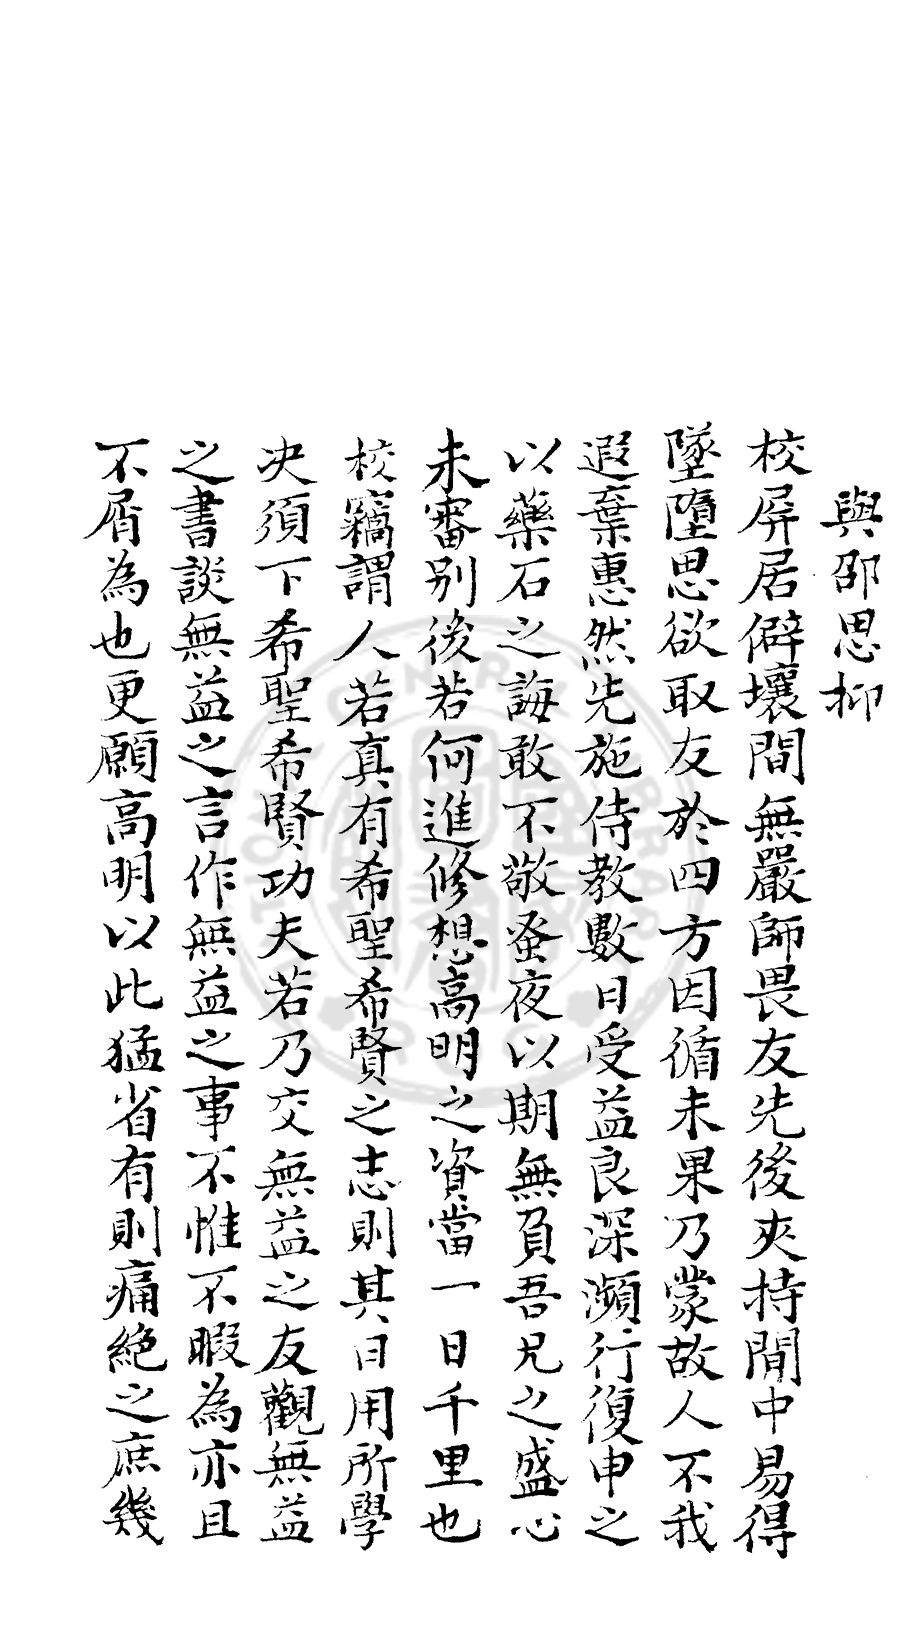 與邵思抑
校屏居僻壤間無嚴師畏友先後夾持閒中易得
墜墮思欲取友於四方因循未果乃蒙故人不我
遐棄惠然先施侍教數日受益良深瀕行復申之
以藥石之誨敢不敬蚤夜以期無負吾兄之盛心
未審别後若何進修想高明之資當一日千里也
校竊謂人若真有希聖希賢之志則其日用所學
决須下希聖希賢功夫若乃交無益之友觀無益
之書談無益之言作無益之事不惟不暇為亦且
不屑為也更願高明以此猛省有則痛絶之庶幾